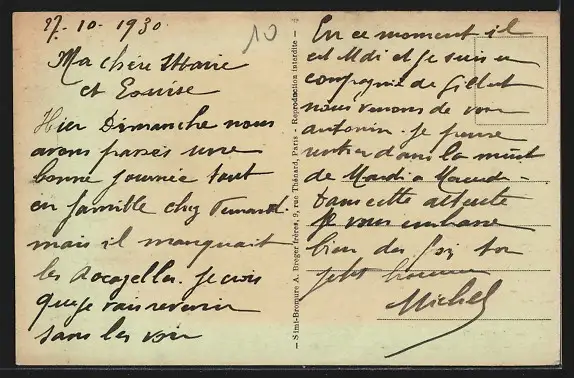 27-10-1930
10
Ma chère Marie
et Louise
Hier Dimanche nous
avons passés une
bonne journée tout
en famille chez
mais il manquait
les Je crois
que je vais revenir
sans les voir
— Simi-Bromure A. Breger frères, 9, rue Thénard, Paris - Reproduction interdite —
En ce moment il
est Midi et je suis en
compagnie de Gilbert
nous venons de voir
antonin. je pense
rentrer dans la nuit
de Mardi a Mercredi -
Dans cette attente
je vous embrasse
bien des fois ton
petit homme
Michel